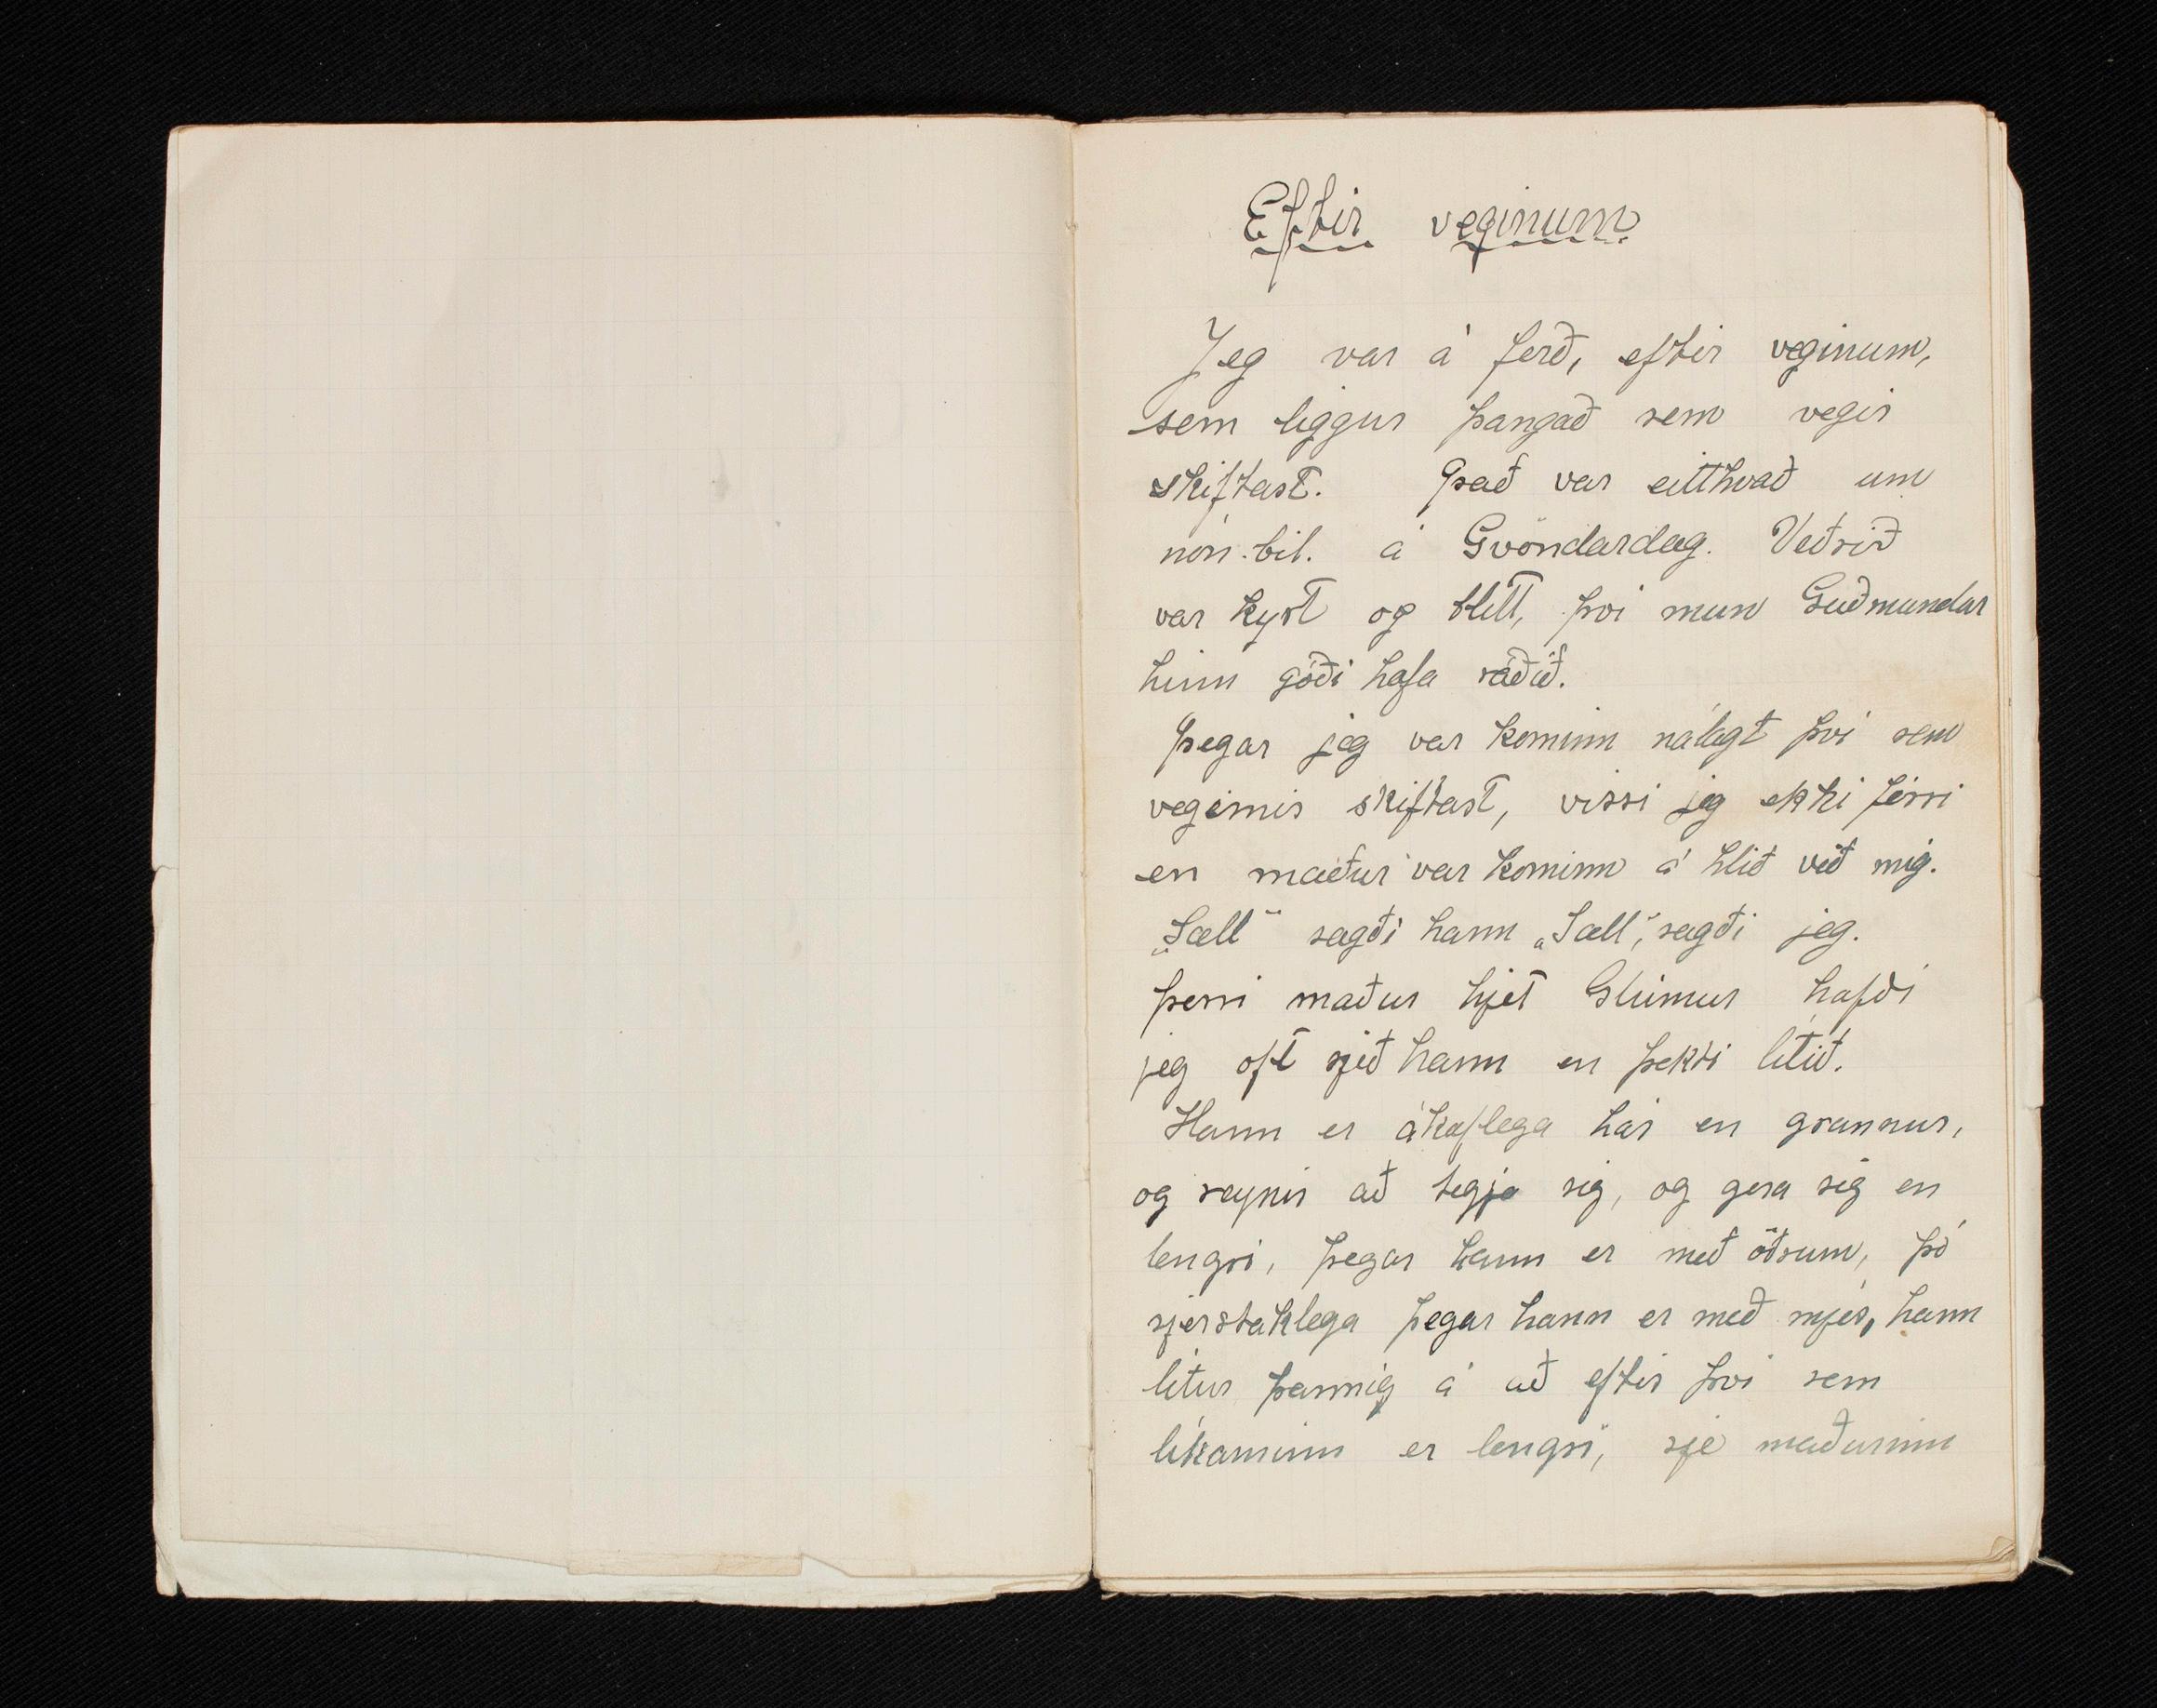 Eftir veginum
Jeg var á ferð, eftir veginum,
sem liggur þangað sem vegir
skiftast. Það var eitthvað um
nón.bil. á Gvöndardag. Veðrið
var kyrt og blítt, því mun Guðmundar
hinn góði hafa ráðið.
Þegar jeg var kominn nálægt því sem
vegirnir skiftast, vissi jeg ekki férri
en maður var kominn á hlið við mig.
„Sæll“ sagði hann „Sæll“, sagði jeg.
þessi maður hjet Glúmur hafði
jeg oft sjeð hann en þekti lítið.
Hann er ákaflega hár en grannur,
og reynir að tegja sig, og gera sig en
lengri, þegar hann er með öðrum, þó
sjerstaklega þegar hann er með mjer, hann
lítur þannig á að eftir því sem
líkaminn er lengri, sje maðurinn